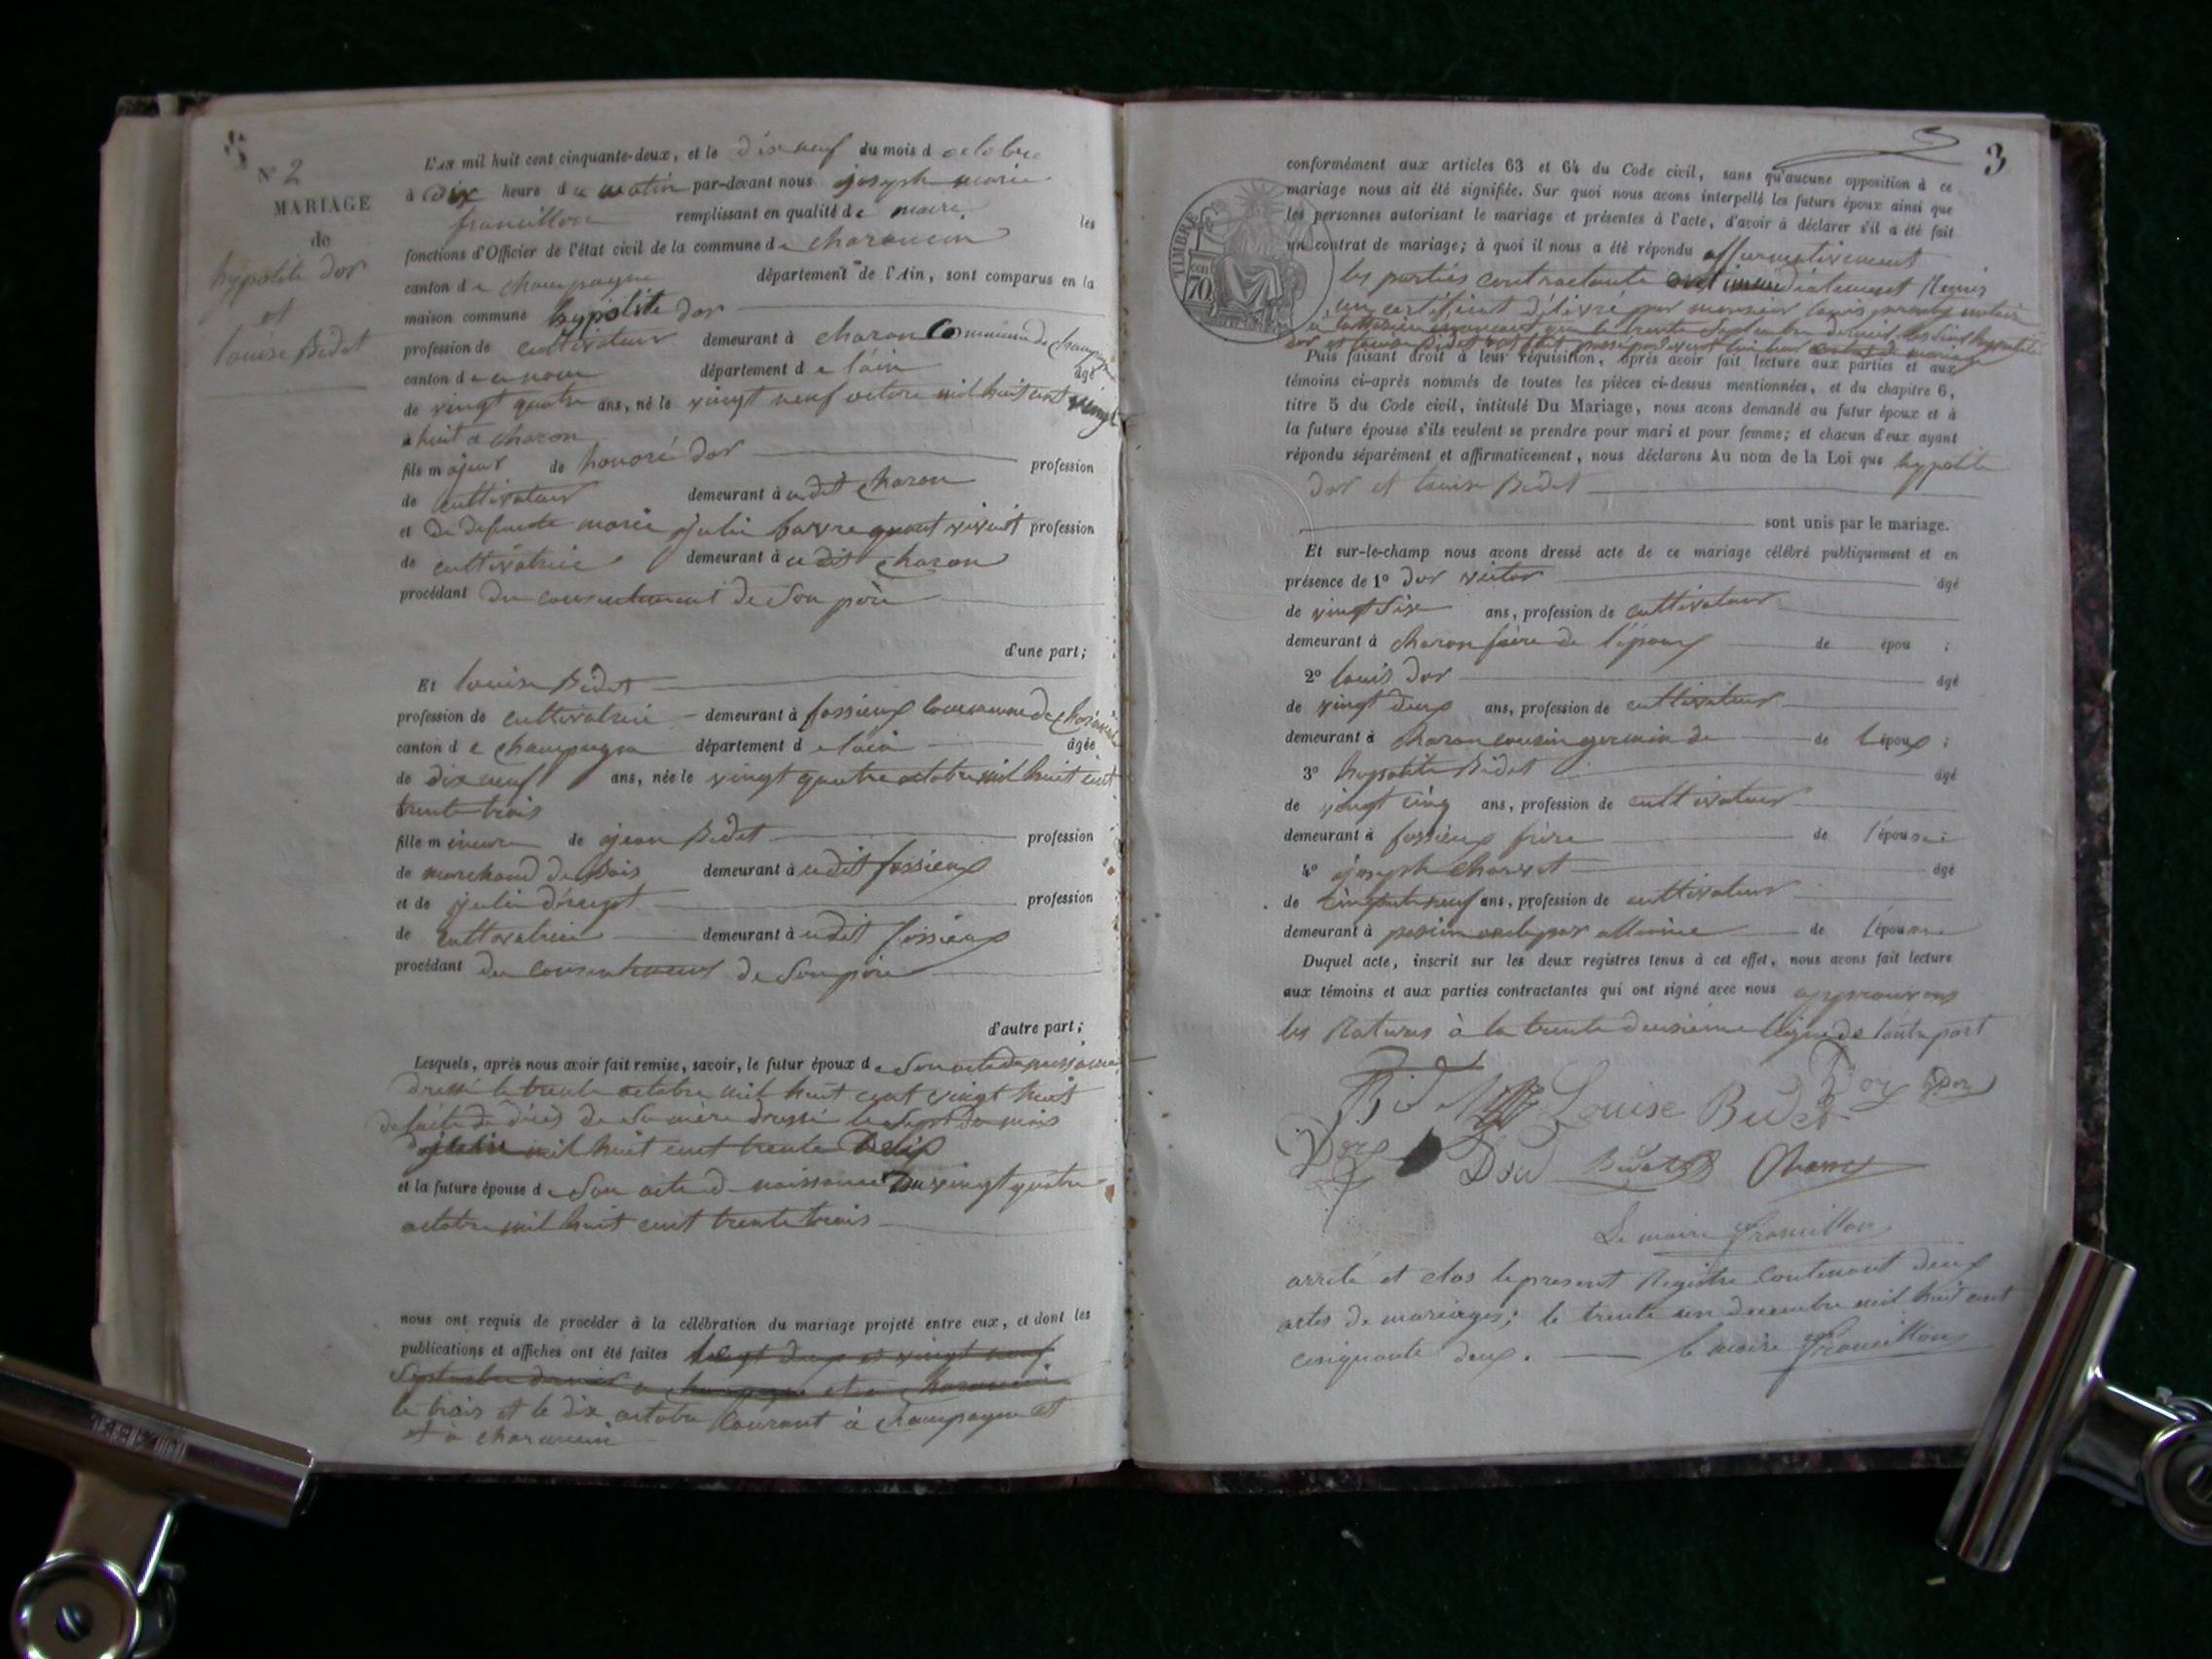 N° 2
MARIAGE
de
hypolite Dor
et
louise Bidet
L'AN mil huit cent cinquante-deux, et le dix neuf du mois d octobre
à dix heure du matin par-devant nous joseph marie
francillon remplissant en qualité de maire les
fonctions d'Officier de l'état civil de la commune de charancin
canton de champagne département de l'Ain, sont comparus en la
maison commune hypolite Dor
profession de cultivateur demeurant à charon Commune de champagne
canton de département de l'ain âgé
de vingt quatre ans, né le vingt neuf octore mil huit cent vingt
huit a charon
fils majeur de honoré Dor profession
de cultivateur demeurant à udit charon
et de defunte marie julie quant vivait profession
de cultivatrice demeurant à udit charon
procédant du consentement de Son père
d'une part;
Et louise Bidet
profession de cultivatrice demeurant à fossieux Commune de
canton de champagne département de lain âgée
de dix neuf ans, née le vingt quatre octobre mil huit cent
trente trois
fille mineure de jean Bidet profession
de marchand de Bois demeurant à udit fossieux
et de julie profession
de cultivatrice demeurant à udit fossieux
procédant du consentement de Son père
d'autre part;
Lesquels, après nous avoir fait remise, savoir, le futur époux de Son acte de naissance
dressé le trente octobre mil huit cent vingt huit
de sa mère dressé le Sept du mois
mil huit cent trente
et la future épouse de Son acte de naissance du vingt quatre
octobre mil huit cent trente trois
nous ont requis de procéder à la célébration du mariage projeté entre eux, et dont les
publications et affiches ont été faites vingt deux et vingt neuf
Septembre dernier a champagne et a charancin
le trois et le dix octobre Courant à champagne et
et à charancin
3
conformément aux articles 63 et 64 du Code civil, sans qu'aucune opposition à ce
mariage nous ait été signifiée. Sur quoi nous avons interpellé les futurs époux ainsi que
les personnes autorisant le mariage et présentes à l'acte, d'avoir à déclarer s'il a été fait
un contrat de mariage; à quoi il nous a été répondu affirmativement
TIMBRE
70
les parties contractante ont immédiatement Remis
un certificat délivré par monsieur louis notaire
que le trente Septembre dernier
Dor et louise Bidet ont fait
Puis faisant droit à leur réquisition, après avoir fait lecture aux parties et aux
témoins ci-après nommés de toutes les pièces ci-dessus mentionnées, et du chapitre 6,
titre 5 du Code civil, intitulé Du Mariage, nous avons demandé au futur époux et à
la future épouse s'ils veulent se prendre pour mari et pour femme; et chacun d'eux ayant
répondu séparément et affirmativement, nous déclarons Au nom de la Loi que hypolite
Dor et louise Bidet
sont unis par le mariage.
Et sur-le-champ nous avons dressé acte de ce mariage célébré publiquement et en
présence de 1° Dor victor âgé
de vingt Six ans, profession de cultivateur
demeurant à charon frère de l'époux de épou ;
2° louis Dor âgé
de vingt deux ans, profession de cultivateur
demeurant à charon cousin germain de de l'époux ;
3° hypolite Bidet âgé
de vingt cinq ans, profession de cultivateur
demeurant à fossieux frère de l'épouse ;
4° joseph charvet âgé
de cinquante neuf ans, profession de cultivateur
demeurant à oncle par alliance de l'épouse
Duquel acte, inscrit sur les deux registres tenus à cet effet, nous avons fait lecture
aux témoins et aux parties contractantes qui ont signé avec nous approuvons
les Ratures à la trente deuxième ligne de l'autre part
Bidet Louise Bidet Dor Dor
Dor Dor Bidet
Le maire francillon
arreté et clos le present Registre contenant deux
actes de mariages; le trente un decembre mil huit cent
cinquante deux. le maire francillon